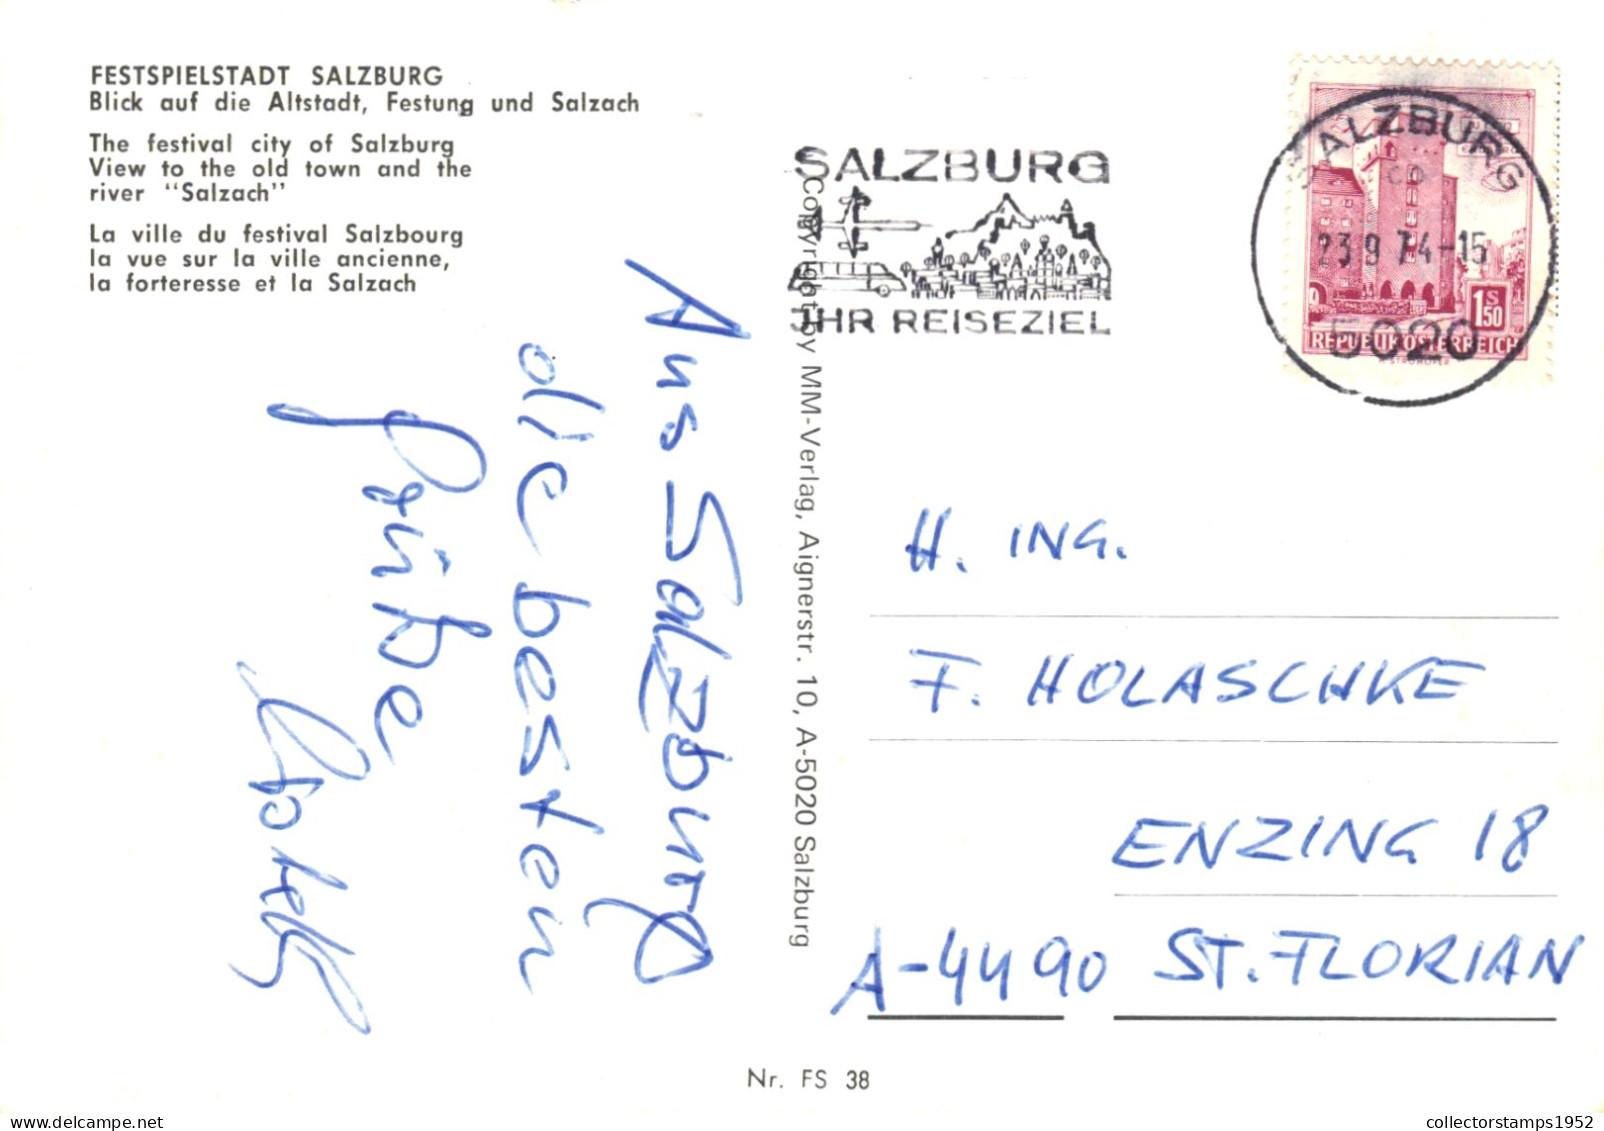 FESTSPIELSTADT SALZBURG
Blick auf die Altstadt, Festung und Salzach
The festival city of Salzburg
View to the old town and the
river "Salzach"
La ville du festival Salzbourg
la vue sur la ville ancienne,
la forteresse et la Salzach
Aus Salzburg
die besten
Grüße
Copyright by MM-Verlag, Aignerstr. 10, A-5020 Salzburg
SALZBURG
IHR REISEZIEL
SALZBURG
23.9.74-15
5020
1 S 50
REPUBLIK ÖSTERREICH
H. ING.
F. HOLASCHKE
ENZING 18
A-4490 ST. FLORIAN
Nr. FS 38
collectorstamps1952